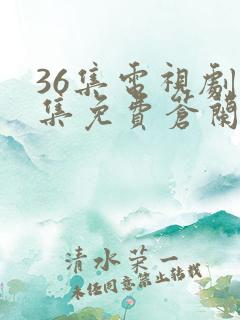 36集電視劇
集免費蒼蘭
清水荣一
未经同意禁止转载